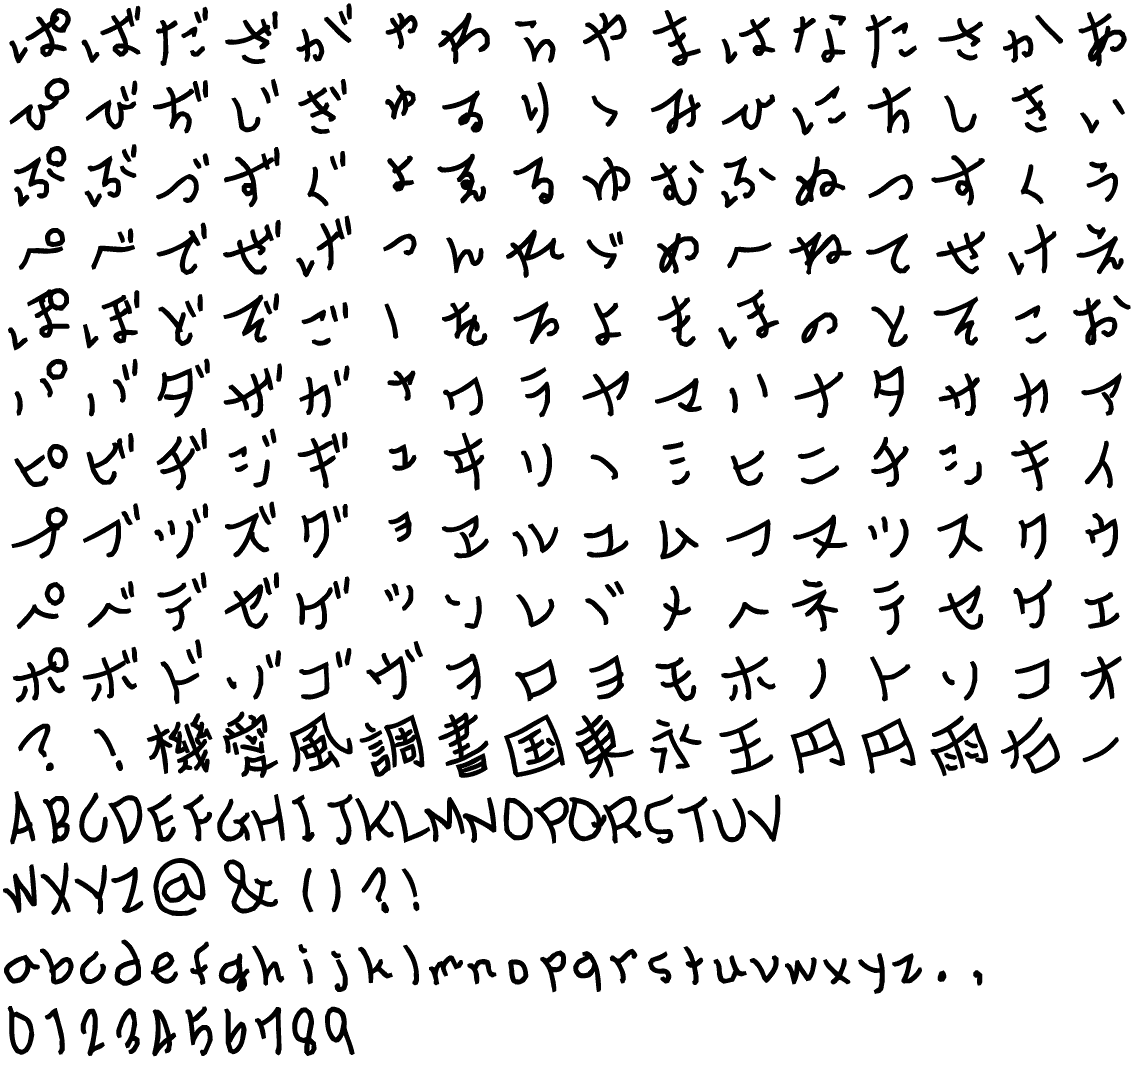 あいうえおアイウエオ一
かきくけこカキクケコ右
さしすせそサシスセソ雨
たちつてとタチツテト円
なにぬねのナニヌネノ円
はひふへほハヒフヘホ王
まみむめもマミムメモ永
やゝゆゞよヤヽユヾヨ東
らりるれろラリルレロ国
わゐゑんをワヰヱンヲ書
ゃゅょっーャュョッヴ調
がぎぐげごガギグゲゴ風
ざじずぜぞザジズゼゾ愛
だぢづでどダヂヅデド機
ばびぶべぼバビブベボ！
ぱぴぷぺぽパピプペポ？
ABCDEFGHIJKLMNOPQRSTUV
WXYZ@&()?!
abcdefghijklmnopqrstuvwxyz.,
0123456789